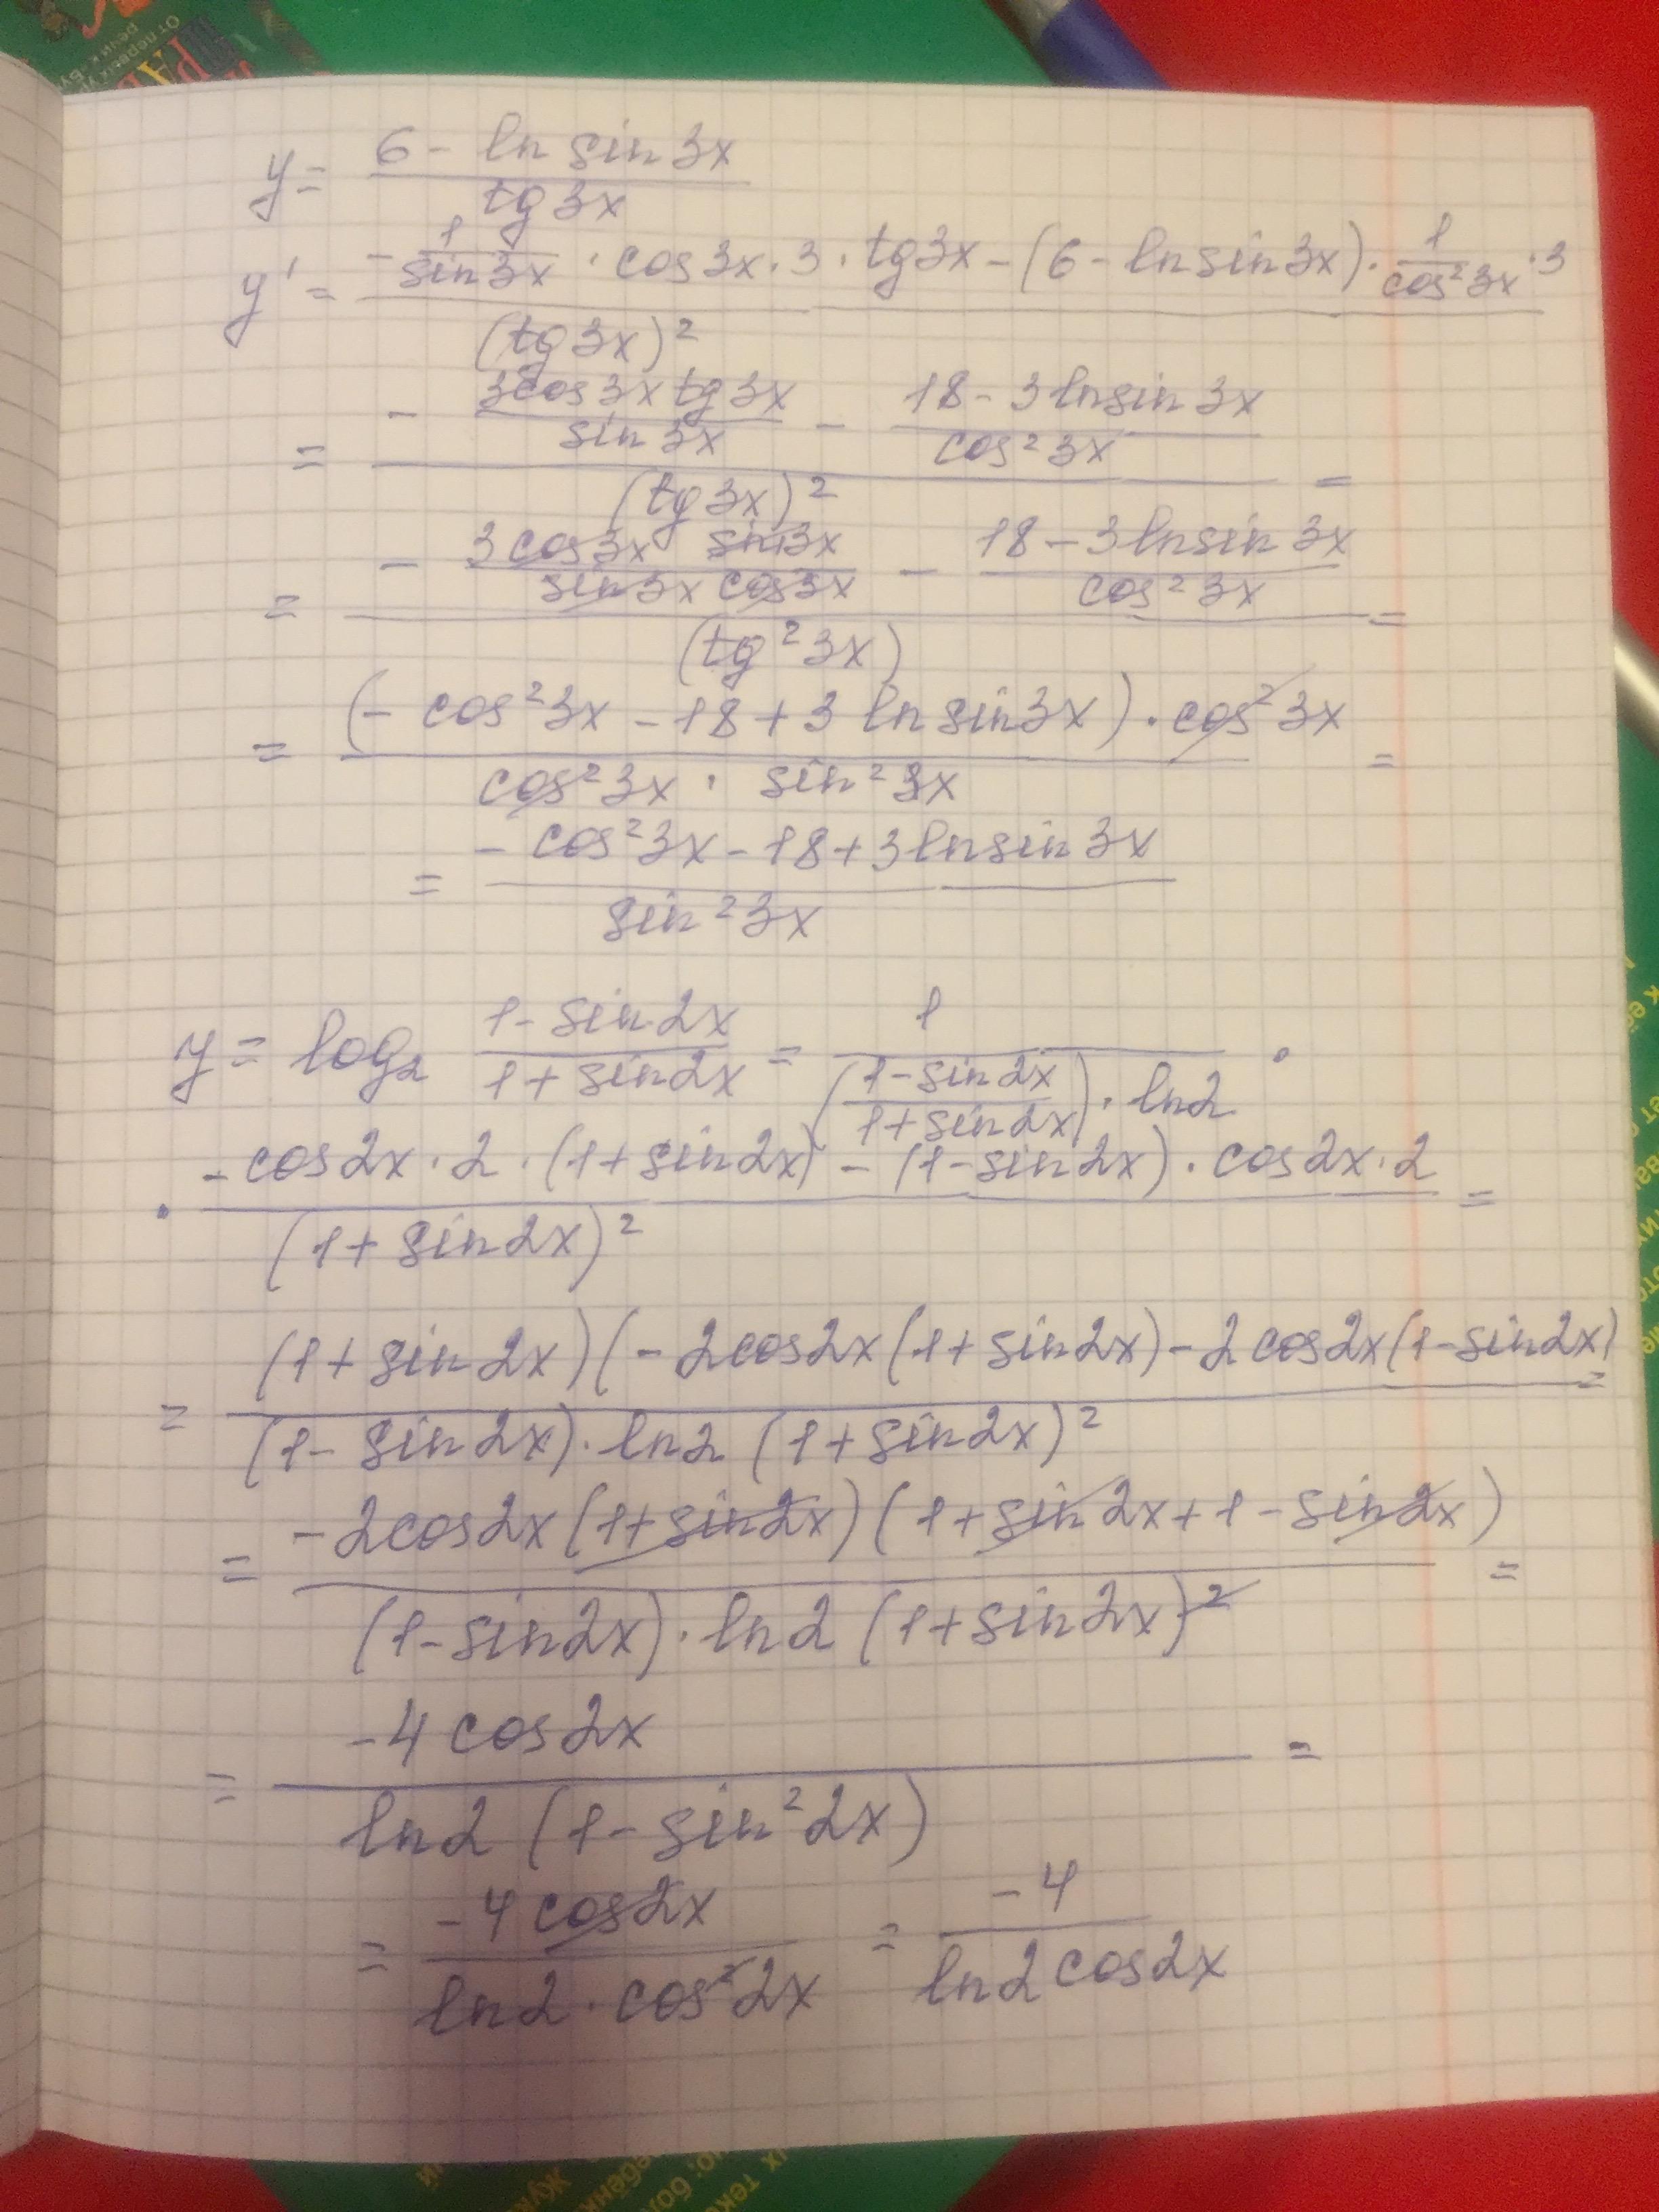 y = (6 - ln sin 3x)/(tg 3x)
y' = (-1/(sin 3x) · cos 3x · 3 · tg 3x - (6 - ln sin 3x) · 1/(cos² 3x) · 3)/((tg 3x)²)
= (- (3 cos 3x tg 3x)/(sin 3x) - (18 - 3 ln sin 3x)/(cos² 3x))/((tg 3x)²) =
= (- (3 cos 3x sin 3x)/(sin 3x cos 3x) - (18 - 3 ln sin 3x)/(cos² 3x))/((tg² 3x)) =
= ((- cos² 3x - 18 + 3 ln sin 3x) · cos² 3x)/(cos² 3x · sin² 3x) =
= (- cos² 3x - 18 + 3 ln sin 3x)/(sin² 3x)
y = log₂ (1 - sin 2x)/(1 + sin 2x) = 1/(((1 - sin 2x)/(1 + sin 2x)) · ln 2) ·
· (- cos 2x · 2 · (1 + sin 2x) - (1 - sin 2x) · cos 2x · 2)/((1 + sin 2x)²) =
= ((1 + sin 2x)(- 2 cos 2x (1 + sin 2x) - 2 cos 2x (1 - sin 2x))/((1 - sin 2x) · ln 2 (1 + sin 2x)²) =
= (- 2 cos 2x (1 + sin 2x)(1 + sin 2x + 1 - sin 2x))/((1 - sin 2x) · ln 2 (1 + sin 2x)²) =
= (- 4 cos 2x)/(ln 2 (1 - sin² 2x)) =
= (- 4 cos 2x)/(ln 2 · cos² 2x) = (- 4)/(ln 2 cos 2x)